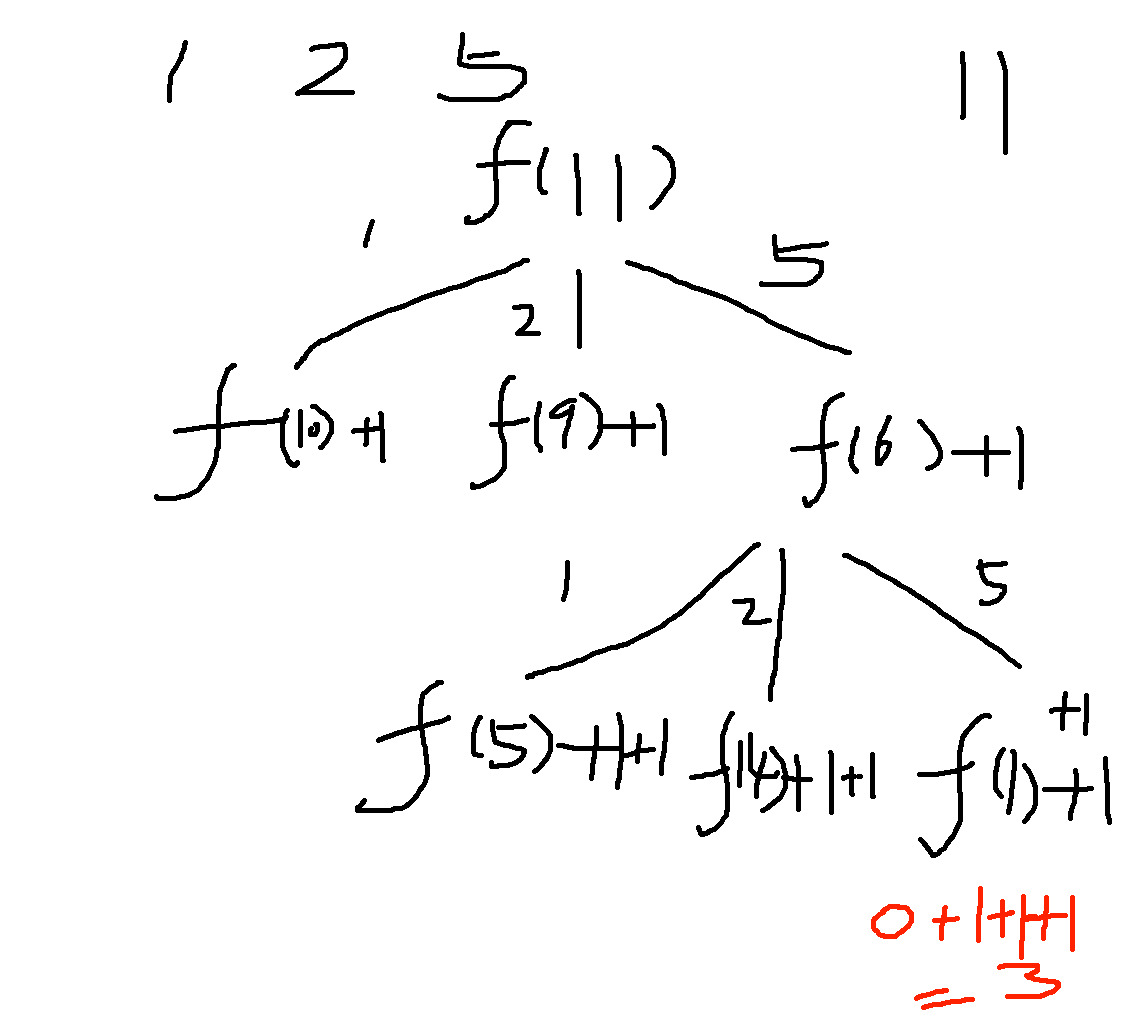 1 2 5 11
f(11)
1 2 5
f(10)+1 f(9)+1 f(6)+1
1 2 5
f(5)+1+1 f(4)+1+1 f(1)+1+1
0+1+1+1
=3